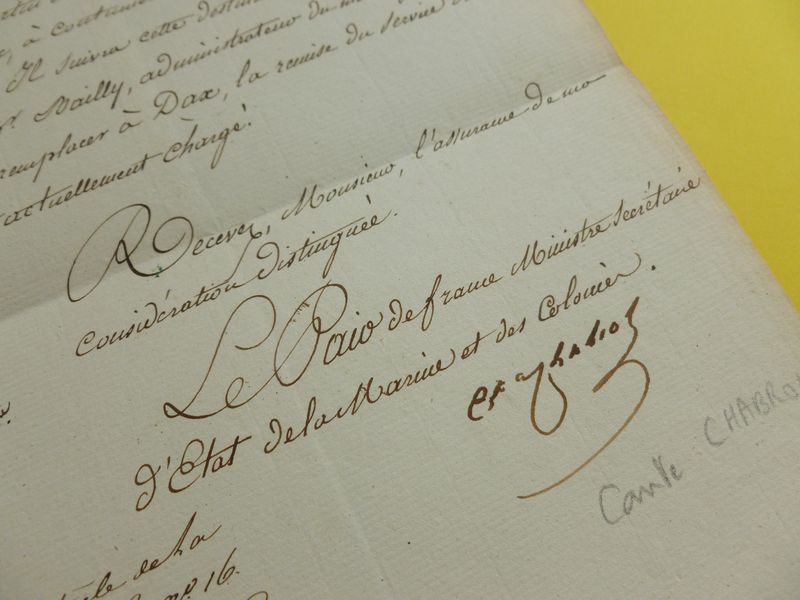 à contin
Il suivra cette destin
Mr. Mailly, administrateur du m
remplacer à Dax, la remise du service d
actuellement chargé.
Recevez, Monsieur, l'assurance de ma
considération distinguée.
Le Pair de france Ministre Secrétaire
d'Etat de la Marine et des Colonies.
Comte CHABRO
de la
no. 16.